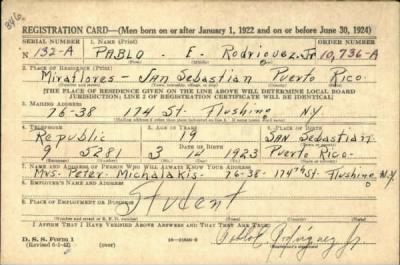 346.
REGISTRATION CARD—(Men born on or after January 1, 1922 and on or before June 30, 1924)
SERIAL NUMBER 1. NAME (Print) ORDER NUMBER
N 132-A PABLO E. Rodriquez Jr. 10,736-A
2. PLACE OF RESIDENCE (Print)
Miraflores - SAN Sebastian Puerto Rico.
[THE PLACE OF RESIDENCE GIVEN ON THE LINE ABOVE WILL DETERMINE LOCAL BOARD
JURISDICTION; LINE 2 OF REGISTRATION CERTIFICATE WILL BE IDENTICAL]
3. MAILING ADDRESS
76-38 174 St. Flushing N.Y.
4. TELEPHONE 5. AGE IN YEARS 6. PLACE OF BIRTH
Republic 19 SAN Sebastian
9 5281 DATE OF BIRTH 3 1923 Puerto Rico.
7. NAME AND ADDRESS OF PERSON WHO WILL ALWAYS KNOW YOUR ADDRESS
Mrs. Peter Michalakis - 76-38 - 174th St. Flushing N.Y.
8. EMPLOYER'S NAME AND ADDRESS
Student
9. PLACE OF EMPLOYMENT OR BUSINESS
I AFFIRM THAT I HAVE VERIFIED ABOVE ANSWERS AND THAT THEY ARE TRUE.
D. S. S. Form 1 Pablo E. Rodriguez Jr.